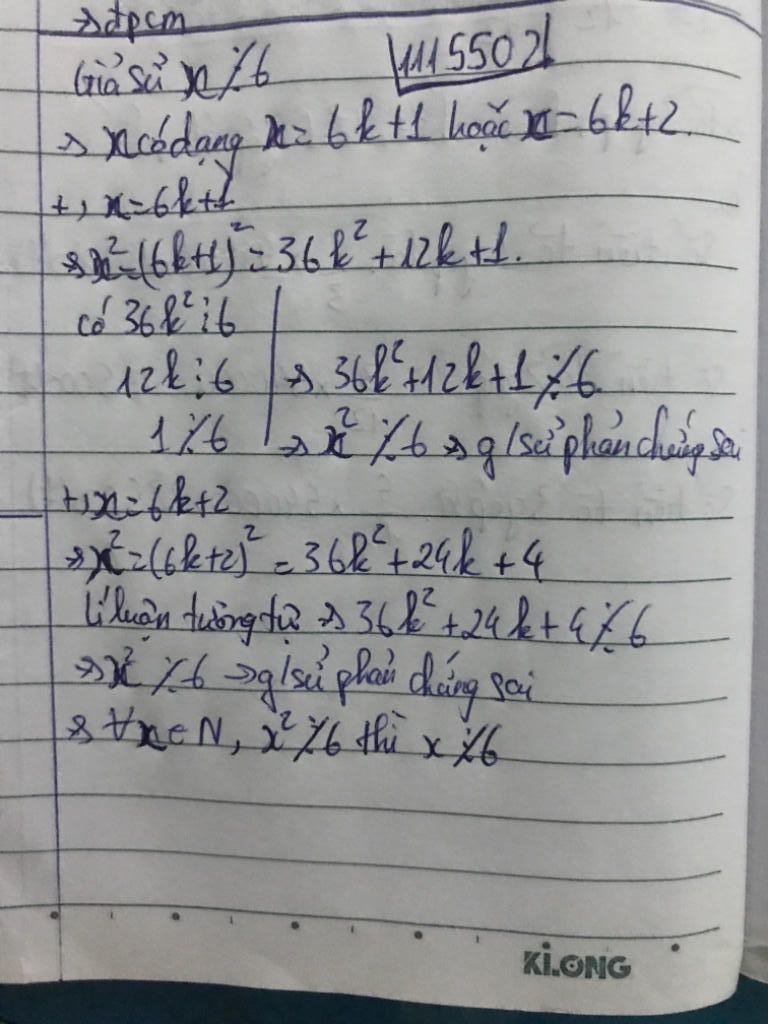 → đpcm
Giả sử x ⋮̸ 6 1115502
→ x có dạng x = 6k+1 hoặc x = 6k+2.
+, x = 6k+1
→ x² = (6k+1)² = 36k² + 12k + 1.
có 36k² ⋮ 6
12k ⋮ 6 → 36k² + 12k + 1 ⋮̸ 6.
1 ⋮̸ 6 → x² ⋮̸ 6 → g/sử phản chứng sai
+, x = 6k+2
→ x² = (6k+2)² = 36k² + 24k + 4
Lí luận tương tự → 36k² + 24k + 4 ⋮̸ 6
→ x² ⋮̸ 6 → g/sử phản chứng sai
→ ∀x ∈ N, x² ⋮̸ 6 thì x ⋮̸ 6
KLONG